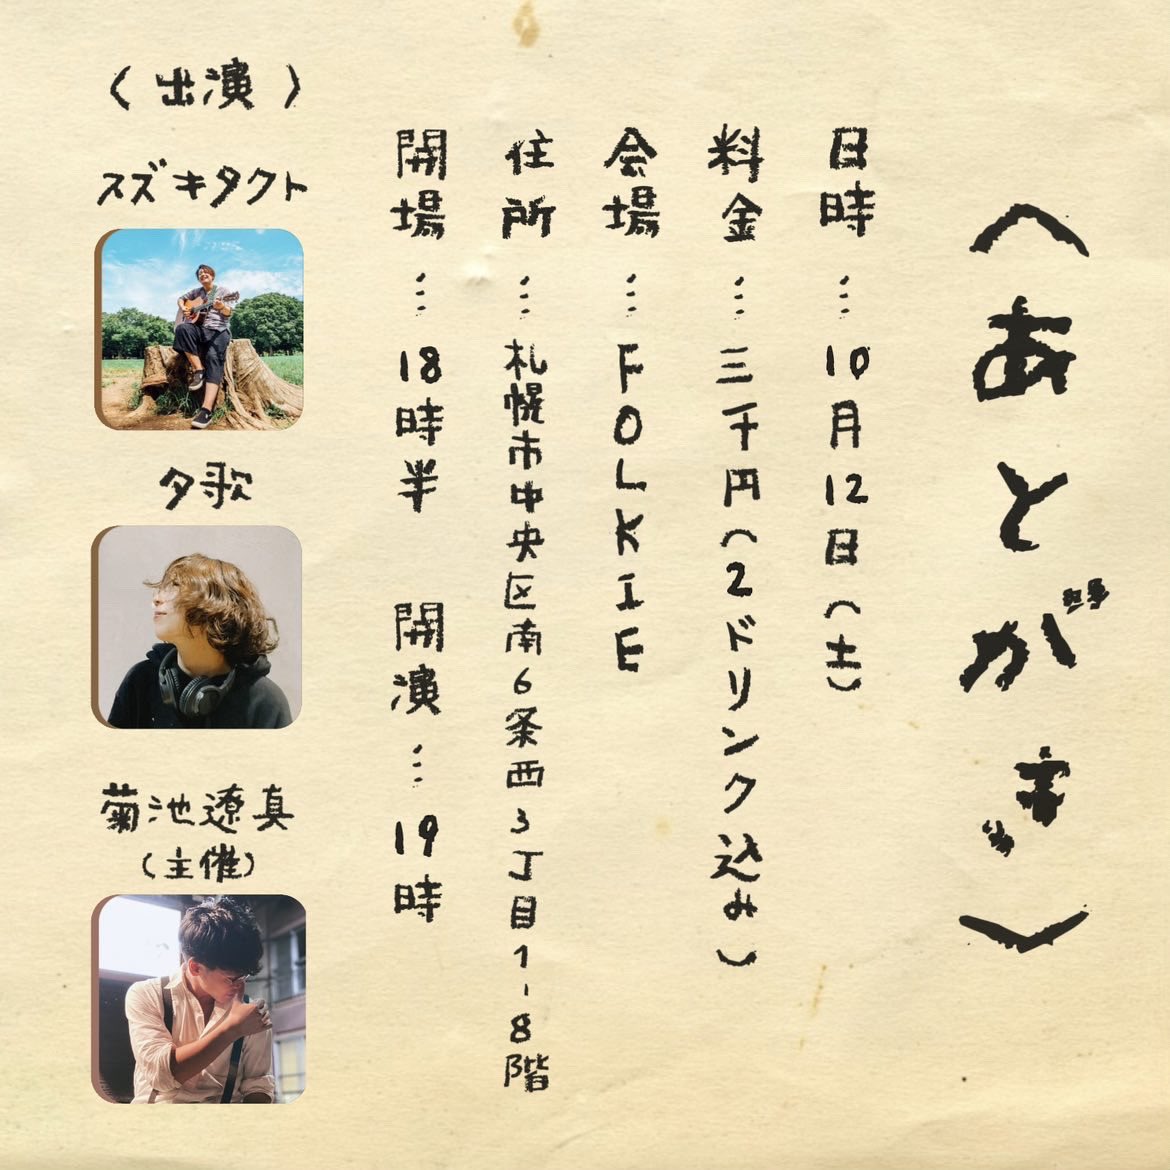 〈あとがき〉
日時…10月12日(土)
料金…三千円(2ドリンク込み)
会場…FOLKIE
住所…札幌市中央区南6条西3丁目1-8階
開場…18時半 開演…19時
〈出演〉
スズキタクト
夕歌
菊池遼真
(主催)